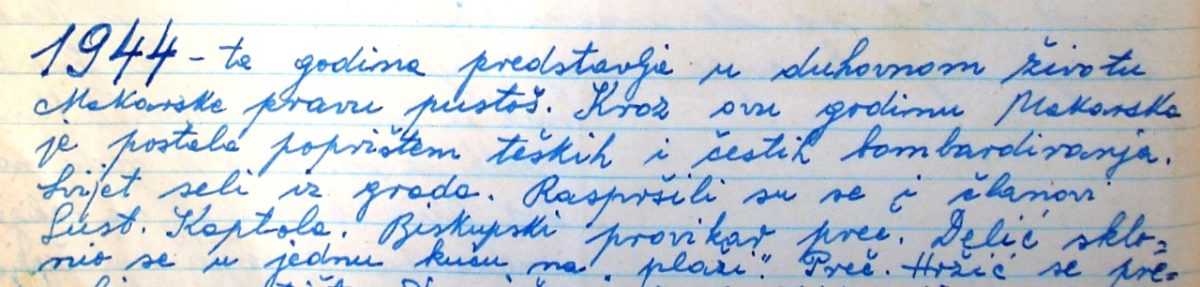 1944-ta godina predstavlja u duhovnom životu
Makarske pravu pustoš. Kroz ovu godinu Makarska
je postala poprištem teških i čestih bombardiranja.
Svijet seli iz grada. Raspršili su se i članovi
Sust. Kaptola. Biskupski provikar preč. Delić sklo-
nio se u jednu kuću na "plaži". Preč. Hržić se pre-